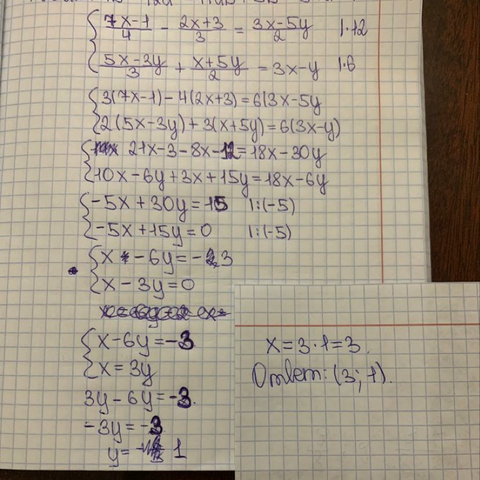 7x-1/4 - 2x+3/3 = 3x-5y/2 |·12
5x-3y/3 + x+5y/2 = 3x-y |·6
3(7x-1)-4(2x+3)=6(3x-5y
2(5x-3y)+3(x+5y)=6(3x-y)
21x-3-8x-12=18x-30y
10x-6y+3x+15y=18x-6y
-5x+30y=15 |:(-5)
-5x+15y=0 |:(-5)
x-6y=-3
x-3y=0
x-6y=-3
x=3y
3y-6y=-3.
-3y=-3
y=1
x=3·1=3.
Ответ: (3; 1).